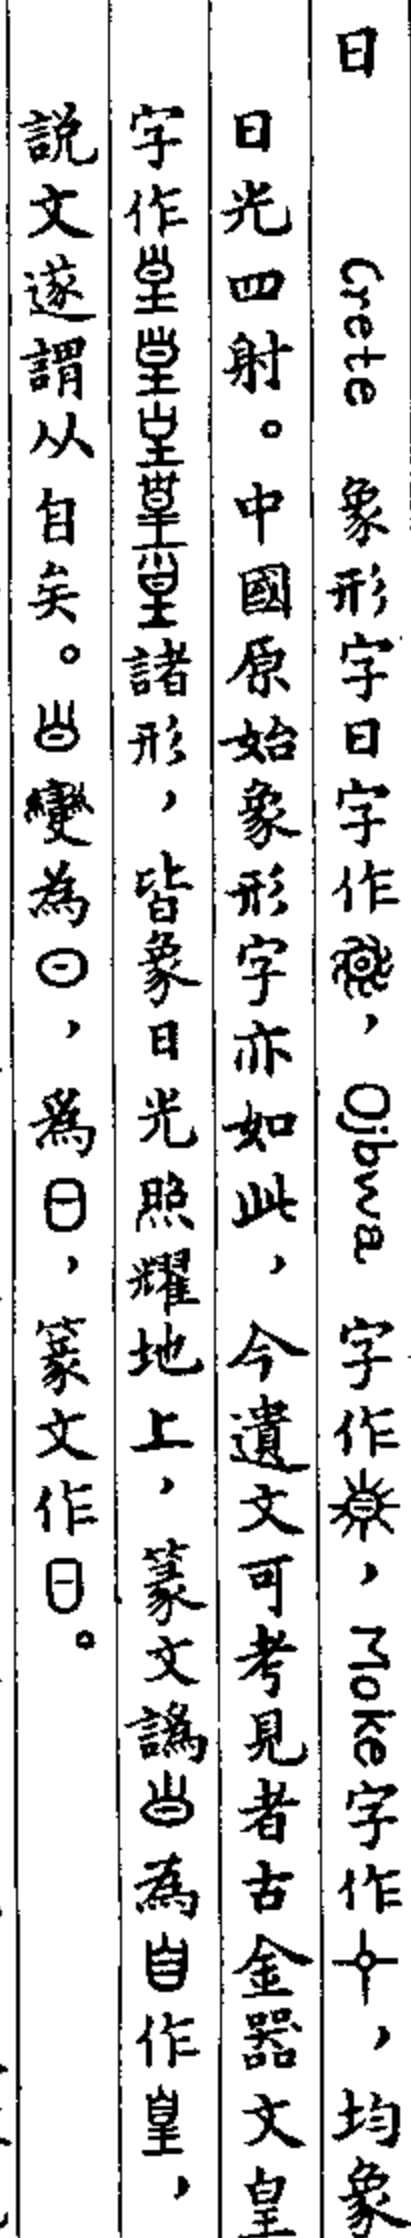 日 Crete 象形字日字作，Ojbwa 字作，Moke字作，均象
日光四射。中國原始象形字亦如此，今遺文可考見者古金器文皇
字作諸形，皆象日光照耀地上，篆文譌為自作皇，
説文遂謂从自矣。變為，為日，篆文作日。